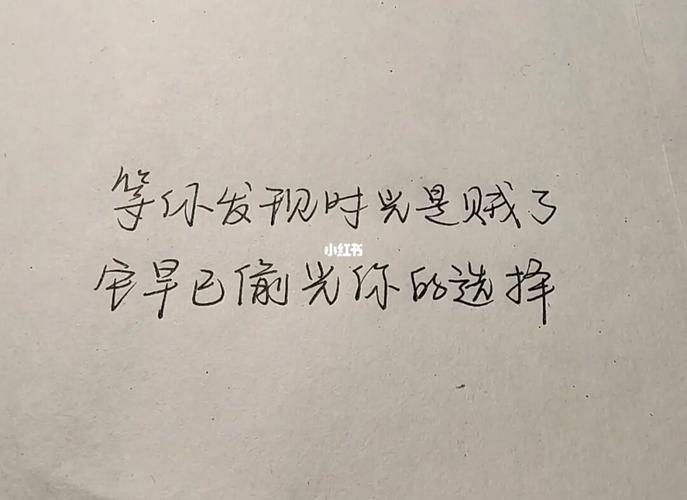 等你发现时光是贼了
小红书
它早已偷光你的选择